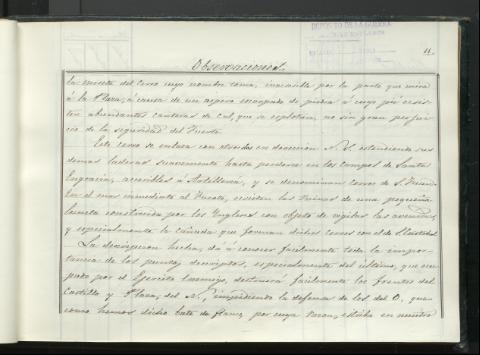 DEPÓSITO DE LA GUERRA
11
Observaciones.
la meseta del Cerro cuyo nombre toma, inaccesible por la parte que mira
á la Plaza, á causa de un áspero escarpado de piedra á cuyo pié exis-
ten abundantes canteras de Cal, que se esplotan, no sin gran perjui-
cio de la seguridad del Fuerte.
Este cerro se enlaza con otros dos en direccion N. S. estendiendo sus
demas laderas suavemente hasta perderse en los Campos de Santa
Engracia, accesibles á Artilleria, y se denominan Cerros de S.
En el mas inmediato al Fuerte, existen las ruinas de una pequeña
luneta construida por los Yngleses con objeto de vigilar las avenidas,
y especialmente la cañada que forman dichos Cerros con el de S. Cristobal
La descripcion hecha, dá á conocer facilmente toda la impor-
tancia de los puntos descriptos, especialmente del último, que ocu-
pado por el Ejercito enemigo, destruirá facilmente los frentes del
Castillo y Plaza, del N., impidiendo la defensa de los del O. que
como hemos dicho bate de flanco, por cuya razon, estriba en nuestro